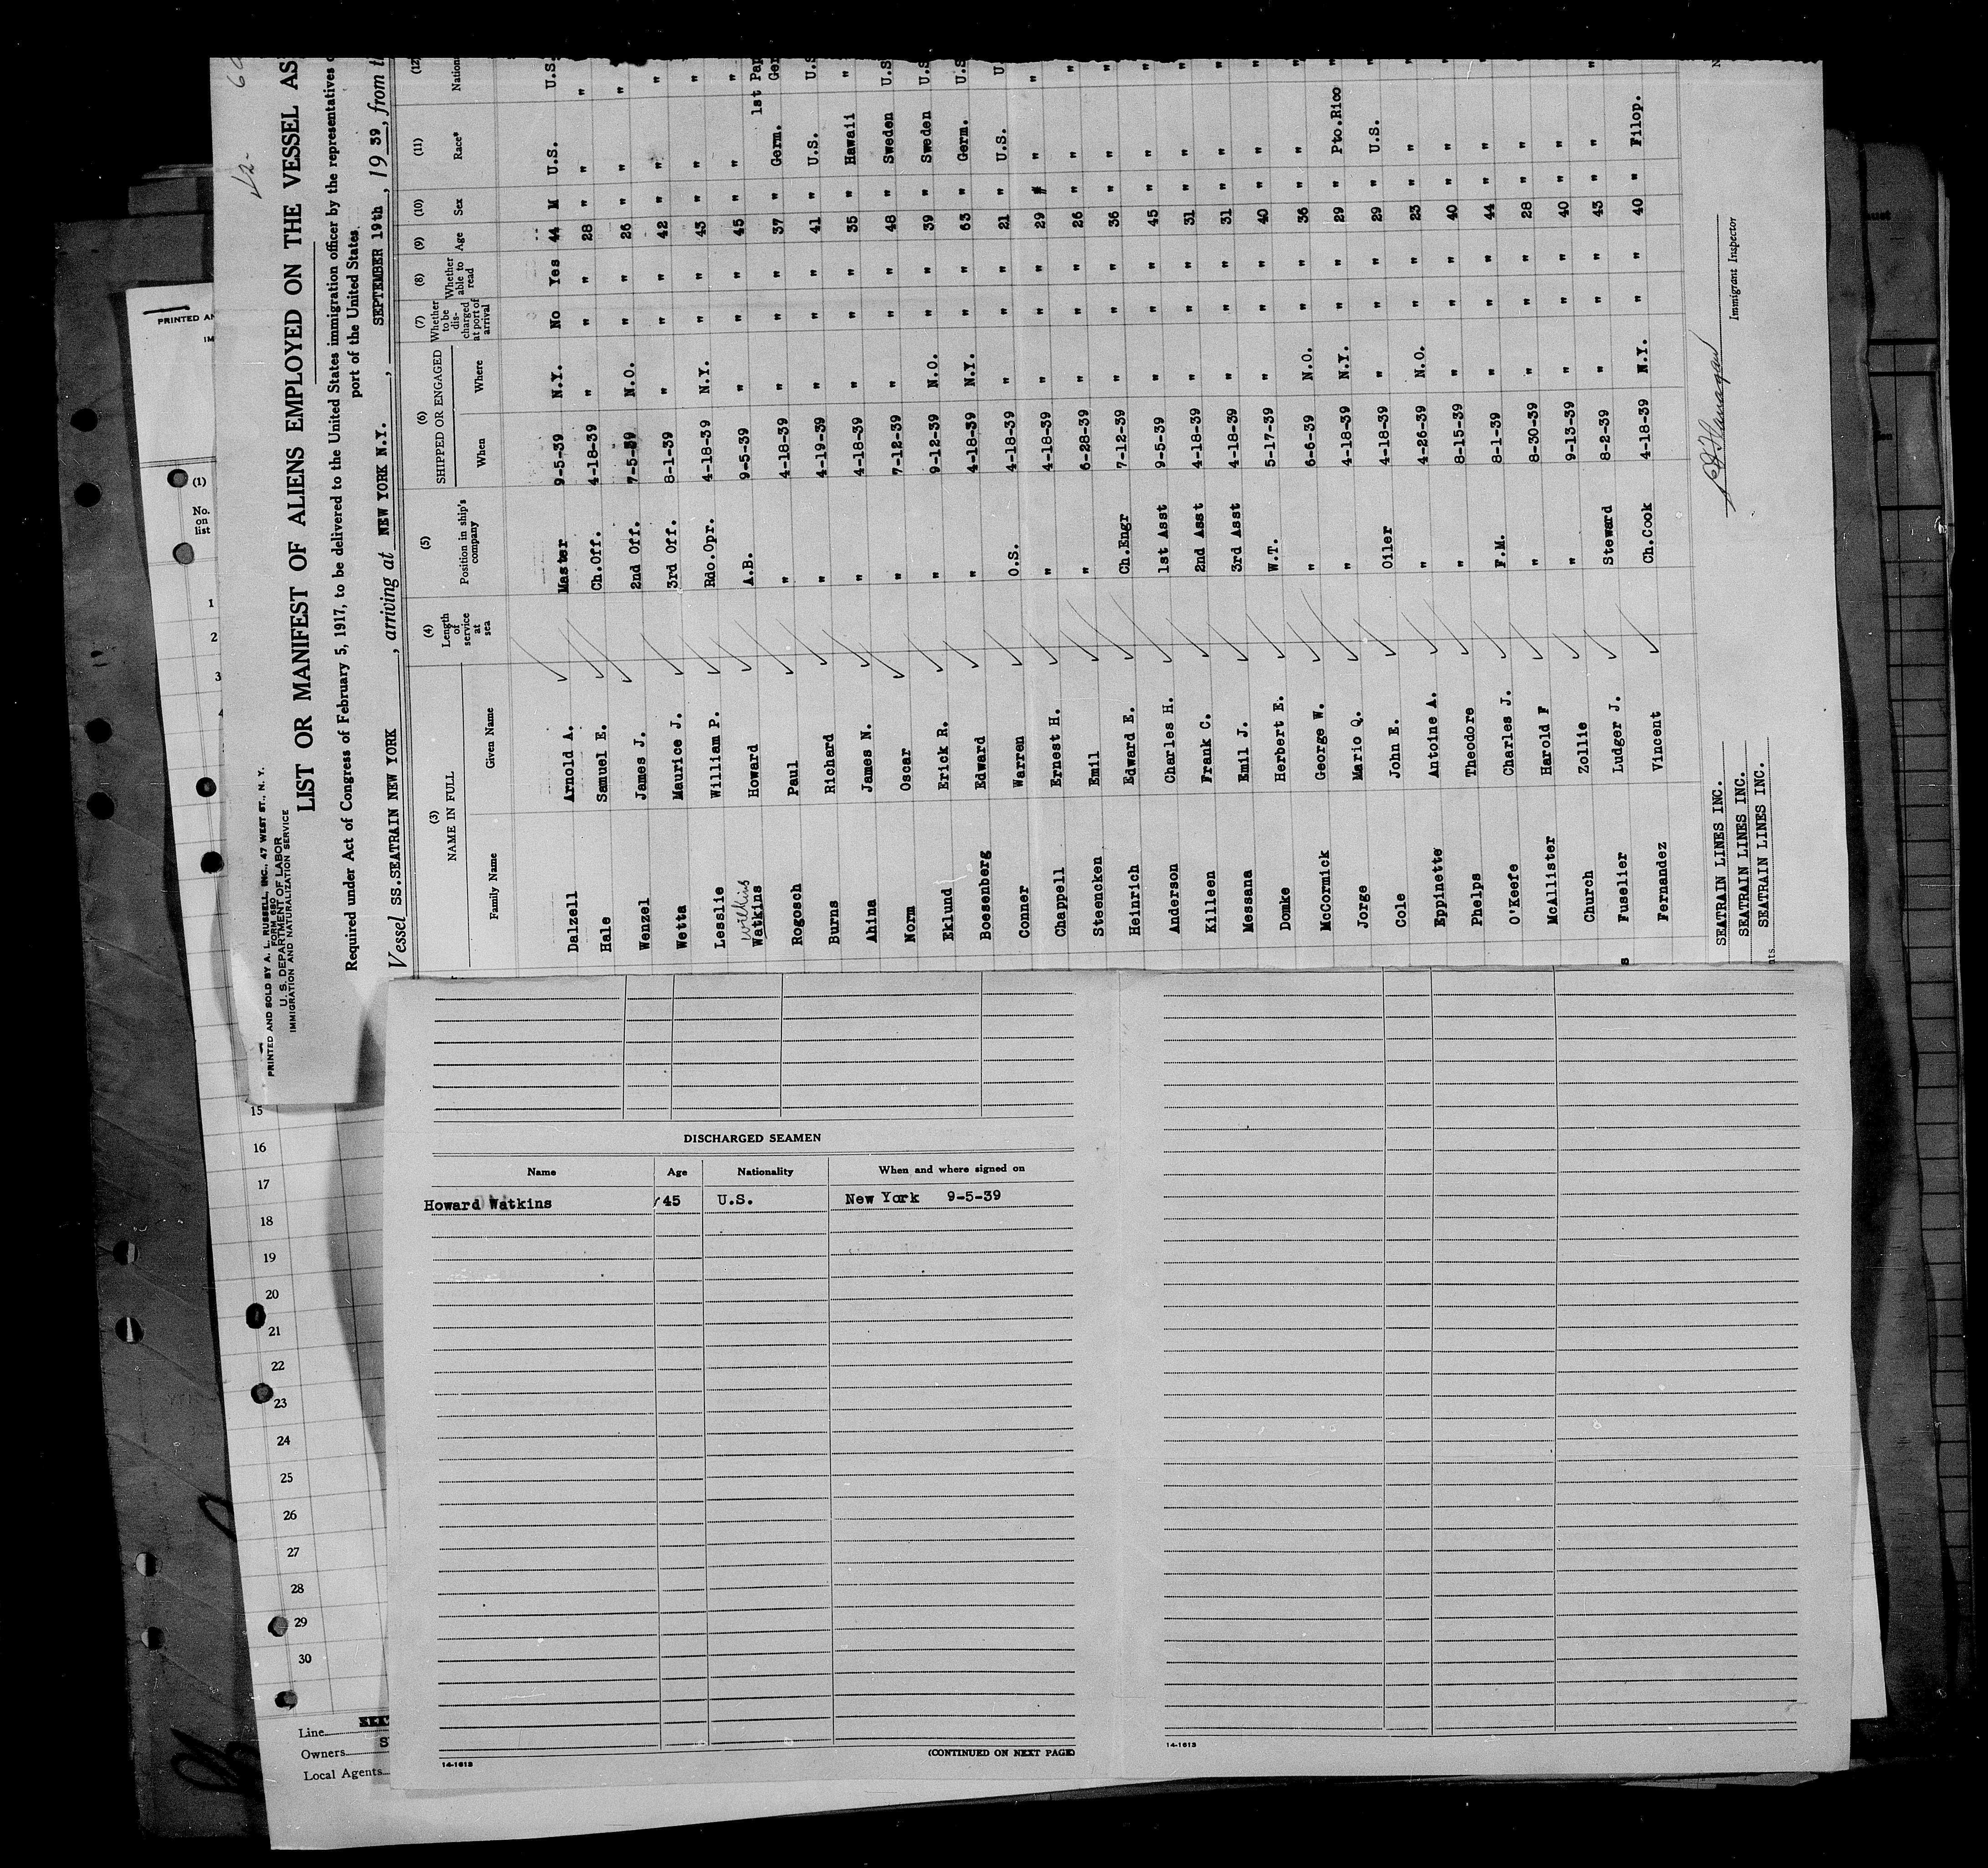 PRINTED AND SOLD BY A. L. RUSSELL, INC., 47 WEST ST., N. Y.
FORM 680
U. S. DEPARTMENT OF LABOR
IMMIGRATION AND NATURALIZATION SERVICE
LIST OR MANIFEST OF ALIENS EMPLOYED ON THE VESSEL AS
Required under Act of Congress of February 5, 1917, to be delivered to the United States immigration officer by the representatives
port of the United States
Vessel SS.SEATRAIN NEW YORK, arriving at NEW YORK N.Y., SEPTEMBER 19th, 1939, from
(3) (4) (5) (6) (7) (8) (9) (10) (11) (12)
NAME IN FULL Length of service at sea Position in ship's company SHIPPED OR ENGAGED Whether to be discharged at port of arrival Whether able to read Age Sex Race* Nation
Family Name Given Name When Where
Dalzell Arnold A. Master 9-5-39 N.Y. No Yes 44 M U.S. U.S.
Hale Samuel E. Ch.Off. 4-18-39 " " " 28 " " "
Wenzel James J. 2nd Off. 7-5-39 N.O. " " 26 " " "
Wetta Maurice J. 3rd Off. 8-1-39 " " " 42 " " "
Lesslie William P. Rdo.Opr. 4-18-39 N.Y. " " 43 " " "
Wilkins
Watkins Howard A.B. 9-5-39 " " " 45 " " "
1st Pap
Rogosch Paul " 4-18-39 " " " 37 " Germ. Ger
Burns Richard " 4-19-39 " " " 41 " U.S. U.S
Ahina James N. " 4-18-39 " " " 35 " Hawaii "
Norm Oscar " 7-12-39 " " " 48 " Sweden U.S
Eklund Erick R. " 9-12-39 N.O. " " 39 " Sweden U.S
Boesenberg Edward " 4-18-39 N.Y. " " 63 " Germ. U.S
Conner Warren O.S. 4-18-39 " " " 21 " U.S. U.
Chappell Ernest H. " 4-18-39 " " " 29 " " "
Steencken Emil " 6-28-39 " " " 26 " " "
Heinrich Edward E. Ch.Engr 7-12-39 " " " 36 " " "
Anderson Charles H. 1st Asst 9-5-39 " " " 45 " " "
Killeen Frak C. 2nd Asst 4-18-39 " " " 31 " " "
Messana Emil J. 3rd Asst 4-18-39 " " " 31 " " "
Domke Herbert E. W.T. 5-17-39 " " " 40 " " "
McCormick George W. " 6-6-39 N.O. " " 36 " " "
Jorge Mario Q. " 4-18-39 N.Y. " " 29 " Pto.Rico "
Cole John E. Oiler 4-18-39 " " " 29 " U.S. "
Eppinette Antoine A. " 4-26-39 N.O. " " 23 " " "
Phelps Theodore " 8-15-39 " " " 40 " " "
O'Keefe Charles J. F.M. 8-1-39 " " " 44 " " "
McAllister Harold F " 8-30-39 " " " 28 " " "
Church Zollie " 9-13-39 " " " 40 " " "
Fuselier Ludger J. Steward 8-2-39 " " " 43 " " "
Fernandez Vincent Ch.Cook 4-18-39 N.Y. " " 40 " Filop.
SEATRAIN LINES INC.
SEATRAIN LINES INC.
SEATRAIN LINES INC.
Immigrant Inspector
PRINTED AN
(1)
No. on list
1
2
3
4
15
16
17
18
19
20
21
22
23
24
25
26
27
28
29
30
Line
Owners
Local Agents
DISCHARGED SEAMEN
Name Age Nationality When and where signed on
Howard Watkins 45 U.S. New York 9-5-39
14-1613
(CONTINUED ON NEXT PAGE)
14-1613